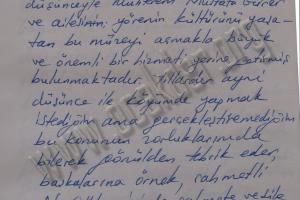 düşünceyle muhterem Mustafa
ve ailesinin; yörenin kültürünü yaşa-
tan bu müzeyi açmakla büyük
ve önemli bir hizmeti yerine getirmiş
bulunmaktadır. Yıllardan ayni
düşünce ile köyümde yapmak
istediğim ama gerçekleştiremediğim
bu konunun zorluklarınıda
bilerek gönülden tebrik eder,
başkalarına örnek, rahmetli